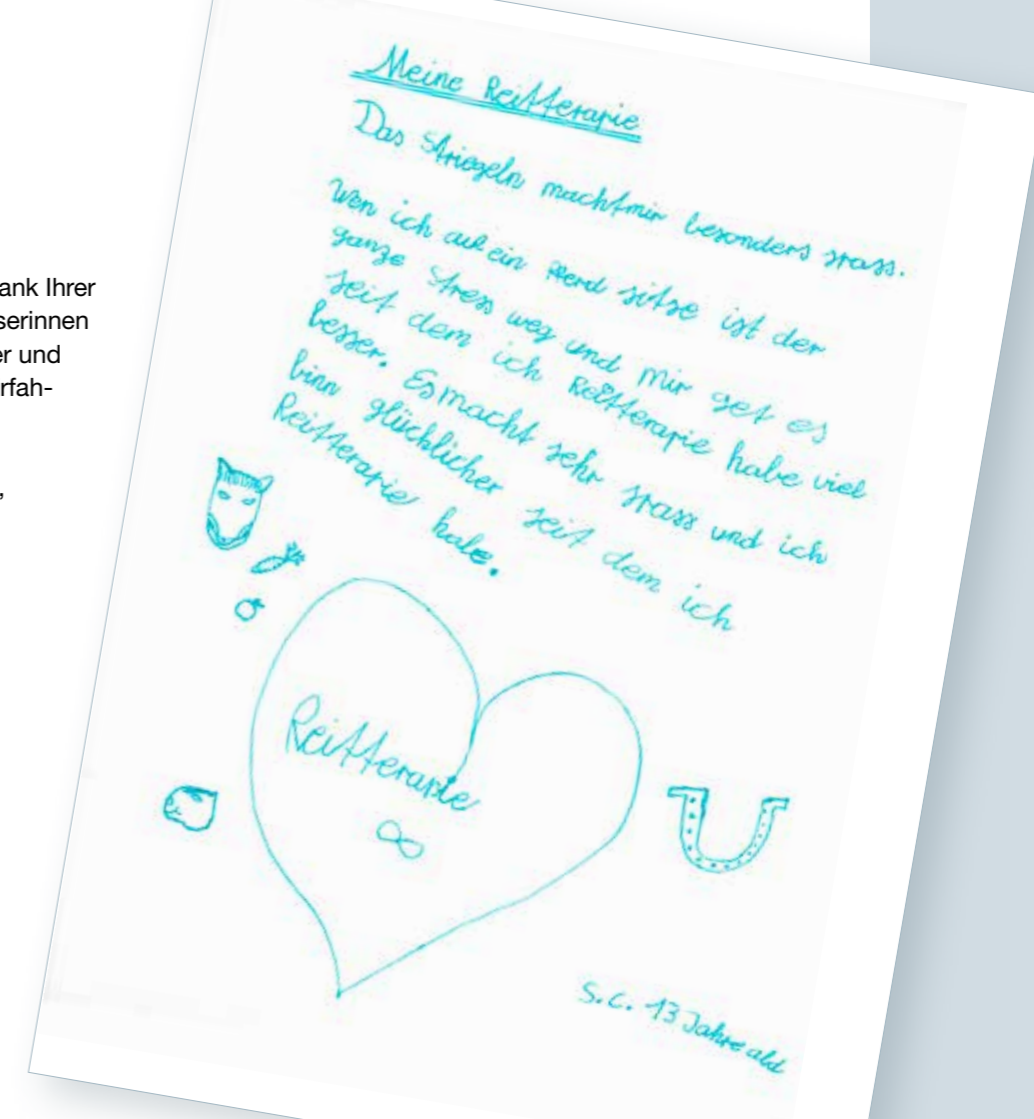 ank Ihrer
serinnen
er und
rfah-
,
Meine Reitterapie
Das Striegeln macht mir besonders spass.
Wen ich auf ein Pferd sitze ist der
ganze Stress weg und mir get es
seit dem ich Reitterapie habe viel
besser. Es macht sehr spass und ich
binn glücklicher seit dem ich
Reitterapie habe.
Reitterapie
S.C. 13 Jahre ald